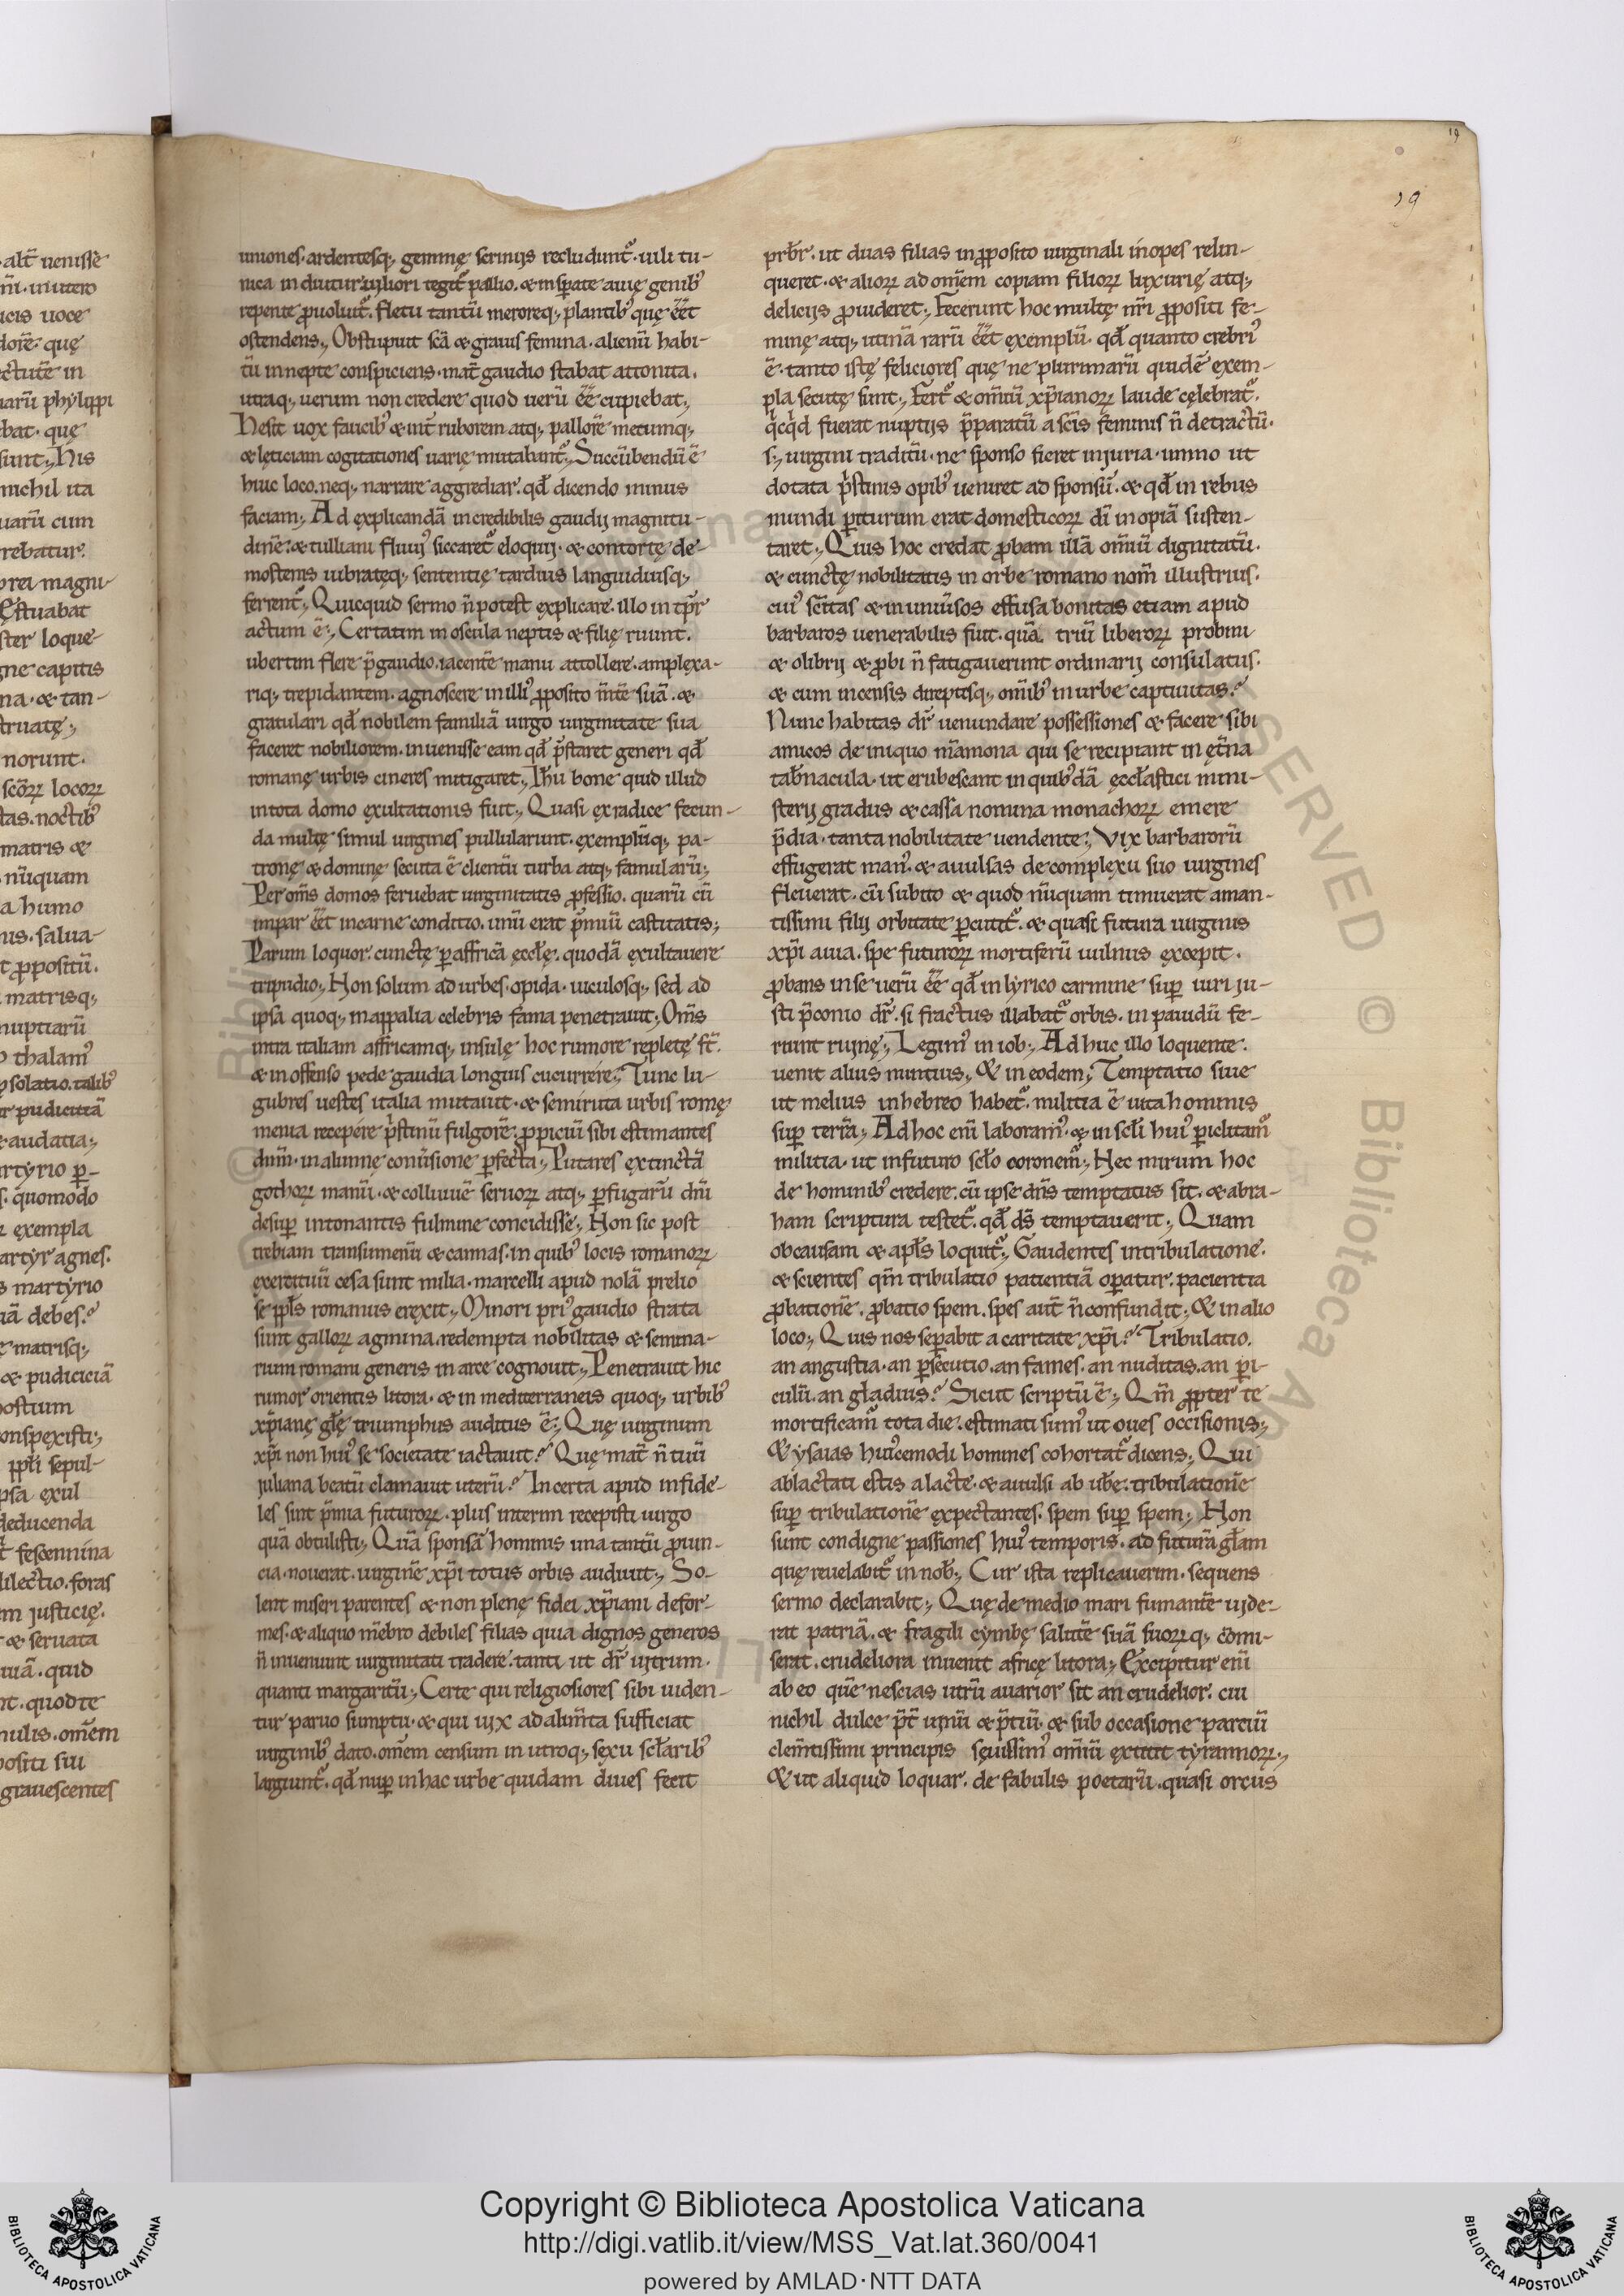 alt̄ uenisse
m̄. in utero
icis uoce
dorē que
ctutē in
uarū phylippi
bat. quę
sunt; His
nichil ita
uarū cum
rebatur.
orei magni
Ęstuabat
ster loque
gne capitis
na. & tan-
truatę;
norunt.
scōꝝ locoꝝ
tas. noctib᾽
matris &
nūquam
a humo
nis. salua-
t ꝓpositū.
matrisq;
nuptiarū
thalam᾽
solatio. talib᾽
pudicitiā
audatia;
artyrio ꝑ-
quomodo
exempla
artyr agnes.
s martyrio
iā debes.
ę matrisq;
& pudiciciā
ostium
onspexisti;
ppl̄i sepul-
psa exul
deducenda
fescennina
dilectio. foras
m justicię.
& seruata
uiā. quid
nt. quod te
mulis. om̄em
positi sui
grauescentes
19
19
uniones. ardentesq; gemmę scrinijs recludunt᾽. uili tu-
nica induitur uyliori tegit᾽ pallio. & insꝑate auię genib᾽
repente ꝓuoluit᾽. fletu tantū meroreq; plantib᾽ quę eēt
ostendens; Obstupuit scā & grauis femina. alienū habi-
tū in nepte conspiciens. mat̄ gaudio stabat attonita.
utraq; uerum non credere quod uerū eē cupiebat;
Hesit uox faucib᾽ & int̄ ruborem atq; pallorē metumq;
& lęticiam cogitationes uarię mutabunt᾽; Succūbendū ē
huic loco. neq; narrare aggrediar. qd̄ dicendo minus
faciam; Ad explicandā incredibilis gaudij magnitu-
dinē. & tulliani fluuij᾽ siccaret᾽ eloquij. & contortę de-
mostenis uibratęq; sententię tardius languidiusq;
ferrent᾽; Quicquid sermo n̄ potest explicare. illo in tp̄r
actum ē; Certatim in oscula neptis & filię ruunt.
ubertim flere p̄ gaudio. iacentē manu attollere. amplexa-
riq; trepidantem. agnoscere in illi᾽ ꝓposito m̄tē suā. &
gratulari qd̄ nobilem familiā uirgo uirginitate sua
faceret nobiliorem. inuenisse eam qd̄ p̄staret generi qd̄
romanę urbis cineres mitigaret; Ihū bone quid illud
in tota domo exultationis fuit; Quasi ex radice fecun-
da multę simul uirgines pullularunt. exemplūq; pa-
tronę & dominę secuta ē clientū turba atq; famularū;
Per om̄s domos feruebat uirginitatis ꝓfessio. quarū cū
impar eēt in carne conditio. unū erat p̄miū castitatis;
Parum loquor. cunctę ꝑ affricā ęccłę. quodā exultauere
tripudio; Non solum ad urbes. opida. uiculosq; sed ad
ipsā quoq; mappalia celebris fama penetrauit; Om̄s
intra italiam affricamq; insulę hoc rumore repletę st̄.
& in offenso pede gaudia longius cucurrere; Tunc lu-
gubres uestes italia mutauit. & semiruta urbis romę
menia recepere p̄stinū fulgorē. ꝓpiciū sibi estimantes
dm̄. in alumne conūsione ꝑfecta; Putares extinctā
gothoꝝ manū. & colluuiē seruoꝝ atq; ꝑfugarū dn̄i
desuꝑ intonantis fulmine concidisse; Non sic post
trebiam transumenū & cannas. in quib᾽ locis romanoꝝ
exercituū cesa sunt milia. marcelli apud nolā prelio
se ppl̄s romanus erexit; Minori pri᾽ gaudio strata
sunt galloꝝ agmina. redempta nobilitas & semina-
rium romani generis in arce cognouit; Penetrauit hic
rumor orientis litora. & in mediterraneis quoq; urbib᾽
xp̄ianę głę triumphus auditus ē; Quę uirginum
xp̄i non hui᾽ se societate iactauit? Quę mat̄ n̄ tuū
juliana beatū clamauit uterū? Incerta apud infide-
les sint p̄mia futuroꝝ. plus interim recepisti uirgo
quā obtulisti; Quā sponsā hominis una tantū ꝓuin-
cia nouerat. uirginē xp̄i totus orbis audiuit; So-
lent miseri parentes & non plenę fidei xp̄iani defor-
mes. & aliquo m̄ebro debiles filias quia dignos generos
n̄ inueniunt uirginitati tradere. tanti ut dr̄ uitrum.
quanti margaritū; Certe qui religiosiores sibi uiden-
tur paruo sumptu. & qui uix ad alim̄ta sufficiat
uirginib᾽ dato. om̄em censum in utroq; sexu scl̄arib᾽
largiunt᾽. qd̄ nuꝑ in hac urbe quidam diues fecit
prb̄r. ut duas filias in ꝓposito uirginali inopes relin-
queret. & alioꝝ ad om̄em copiam filioꝝ luxurię atq;
delicijs ꝓuideret; Fecerunt hoc multę nr̄i ꝓpositi fe-
minę atq; utinā rarū eēt exemplū. qd̄ quanto crebri᾽
ē. tanto istę feliciores quę ne plurimarū quidē exem-
pla secutę sunt; Fert᾽ & om̄iū xp̄ianoꝝ laude celebrat᾽.
q̇cq̇d fuerat nuptijs p̄paratū a scīs feminis n̄ detractū.
s; uirgini traditū. ne sponso fieret injuria. immo ut
dotata p̄stinis opib᾽ ueniret ad sponsū. & qd̄ in rebus
mundi ꝑiturum erat domesticoꝝ dī inopiā susten-
taret; Quis hoc credat ꝓbam illā om̄iū dignitatū.
& cunctę nobilitatis in orbe romano nom̄ illustrius.
cui᾽ scītas & in uniūsos effusa bonitas etiam apud
barbaros uenerabilis fuit. quā triū liberoꝝ probini
& olibrij & ꝓbi n̄ fatigauerunt ordinarij consulatus.
& cum incensis direptisq; om̄ib᾽ in urbe captiuitas.
Nunc habitas dr̄ uenundare possessiones & facere sibi
amicos de iniquo mamona qui se recipiant in ęt̄na
tab̄nacula. ut erubescant in quib᾽dā ęccl̄astici mini-
sterij gradus & cassa nomina monachoꝝ emere
p̄dia. tanta nobilitate uendente; Vix barbarorū
effugerat man᾽. & auulsas de complexu suo uirgines
fleuerat. cū subito & quod nūquam timuerat aman-
tissimi filij orbitate ꝑcutit᾽. & quasi futura uirginis
xp̄i auia. spe futuroꝝ mortiferū uulnus excepit.
ꝓbans in se uerū eē qd̄ in lyrico carmine suꝑ uiri ju-
sti p̄conio dr̄. si fractus illabat᾽ orbis. in pauidū fe-
riunt ruinę; Legim᾽ in iob; Ad huc illo loquente.
uenit alius nuntius; & in eodem; Temptatio siue
ut melius in hebreo habet᾽. militia ē uita hominis
suꝑ terrā; Ad hoc enī laboram᾽. & in scl̄i hui᾽ ꝑiclitam᾽
militia. ut in futuro scl̄o coronem᾽; Nec mirum hoc
de hominib᾽ credere. cū ipse dn̄s temptatus sit. & abra-
ham scriptura testet᾽. qd̄ ds̄ temptauerit; Quam
ob causam & apl̄s loquit᾽; Gaudentes in tribulatione.
& scientes qm̄ tribulatio patientiā oꝑatur. pacientia
ꝓbationē. ꝓbatio spem. spes aut̄ n̄ confundit; & in alio
loco; Quis nos seꝑabit a caritate xp̄i? Tribulatio.
an angustia. an ꝑsecutio. an fames. an nuditas. an ꝑi-
culū. an gladius? Sicut scriptū ē; Qm̄ ꝓpter te
mortificam᾽ tota die. estimati sum᾽ ut oues occisionis;
& ysaias hui᾽cemodi homines cohortat᾽ dicens; Qui
ablactati estis a lacte. & auulsi ab ub̄e. tribulationē
suꝑ tribulationē expectantes. spem suꝑ spem; Non
sunt condigne passiones hui᾽ temporis. ad futurā gl̄am
quę reuelabit᾽ in nob̄; Cur ista replicauerim. sequens
sermo declarabit; Quę de medio mari fumantē uide-
rat patriā. & fragili cymbę salutē suā suoꝝq; cōmi-
serat. crudeliora inuenit africę litora; Excipitur enī
ab eo quē nescias utrū auarior sit an crudelior. cui
nichil dulce p̄t̄ uinū & p̄tiū. & sub occasione partiū
clem̄tissimi principis sęuissim᾽ om̄iū extitit tyrannoꝝ;
& ut aliquid loquar. de fabulis poetarū. quasi orcus
© Biblioteca Apostolica Vaticana
ALL RIGHTS RESERVED
Copyright © Biblioteca Apostolica Vaticana
http://digi.vatlib.it/view/MSS_Vat.lat.360/0041
powered by AMLAD·NTT DATA
BIBLIOTECA APOSTOLICA VATICANA
BIBLIOTECA APOSTOLICA VATICANA